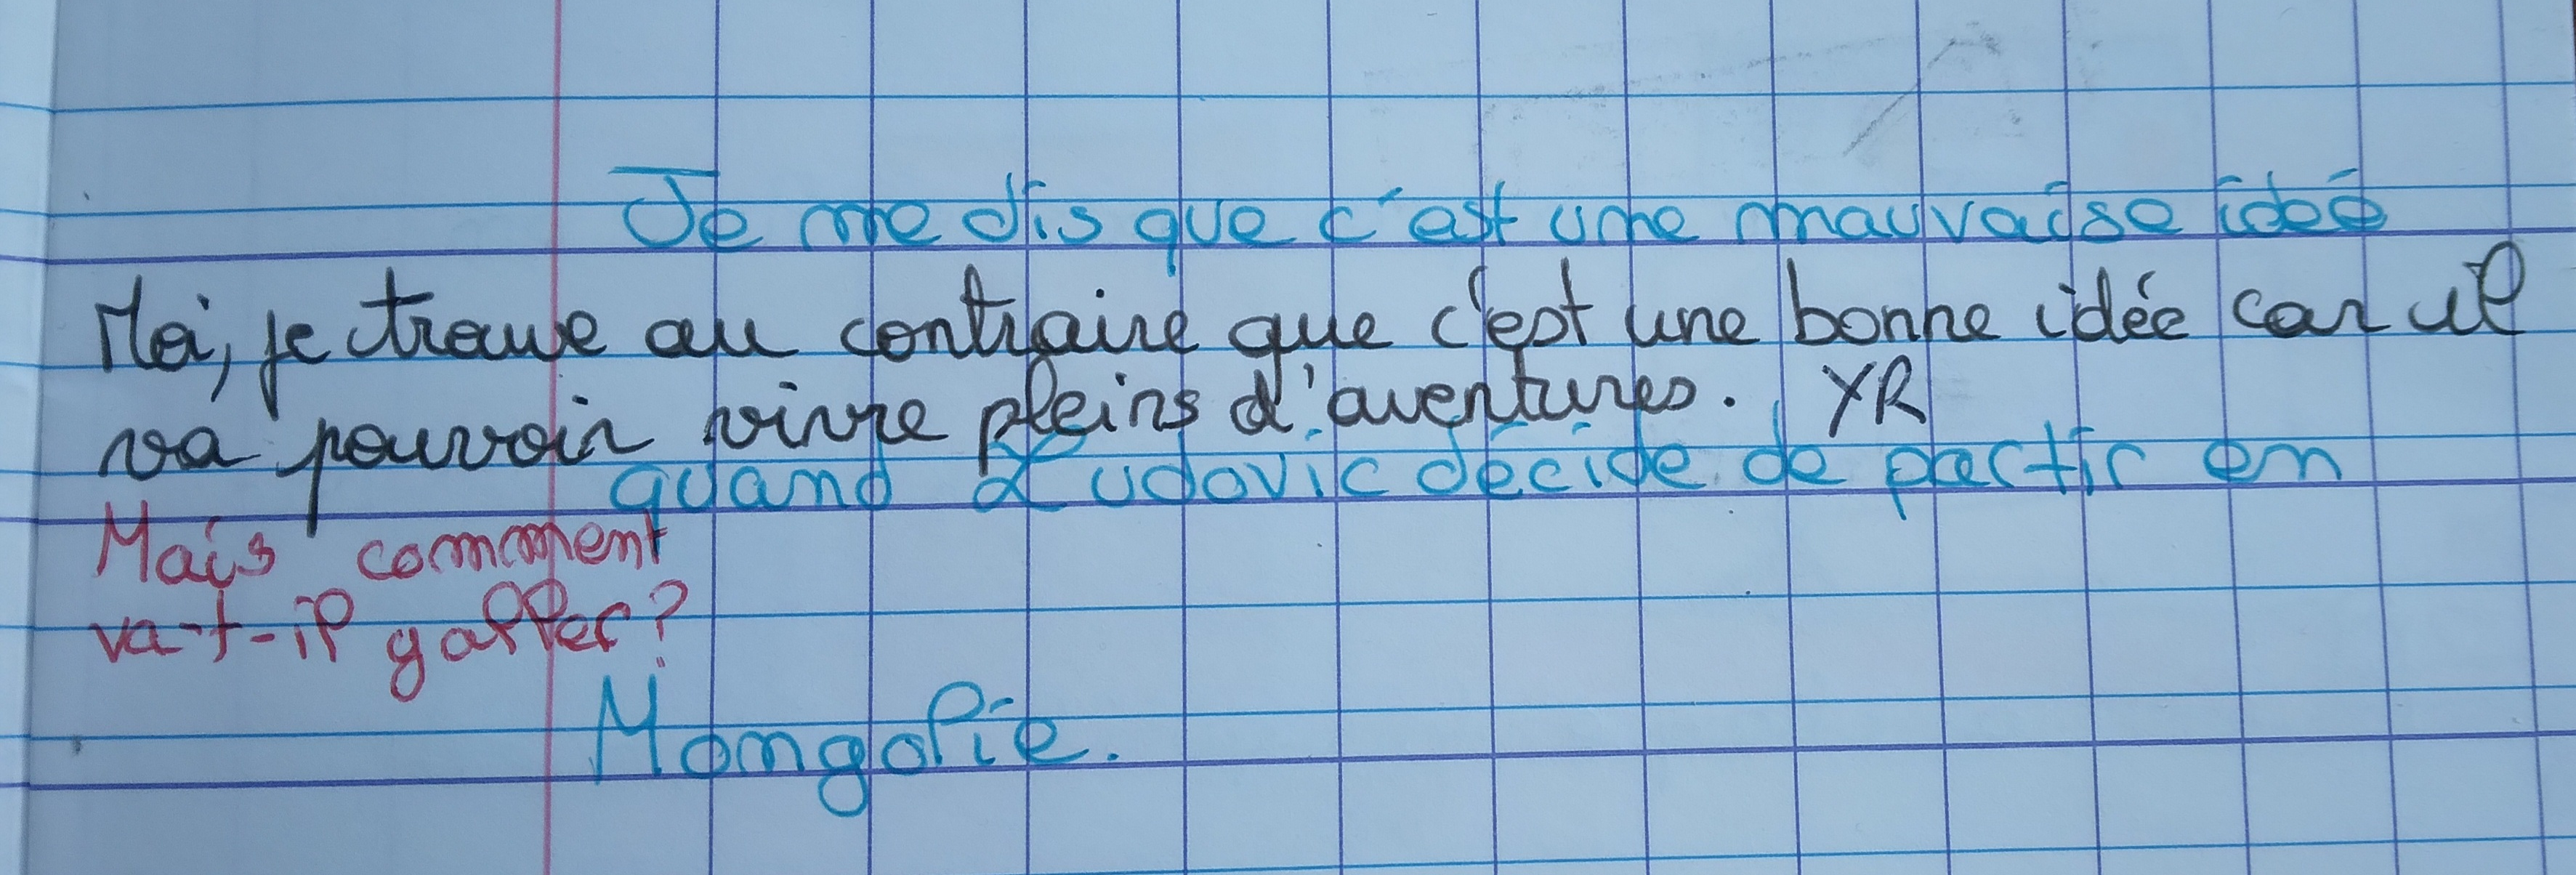 Je me dis que c'est une mauvaise ideé
Moi, je trouve au contraire que c'est une bonne idée car il
va pouvoir vivre pleins d'aventures. YR
quand Ludovic décide de partir en
Mais comment
va-t-il y aller ?
Mongolie.